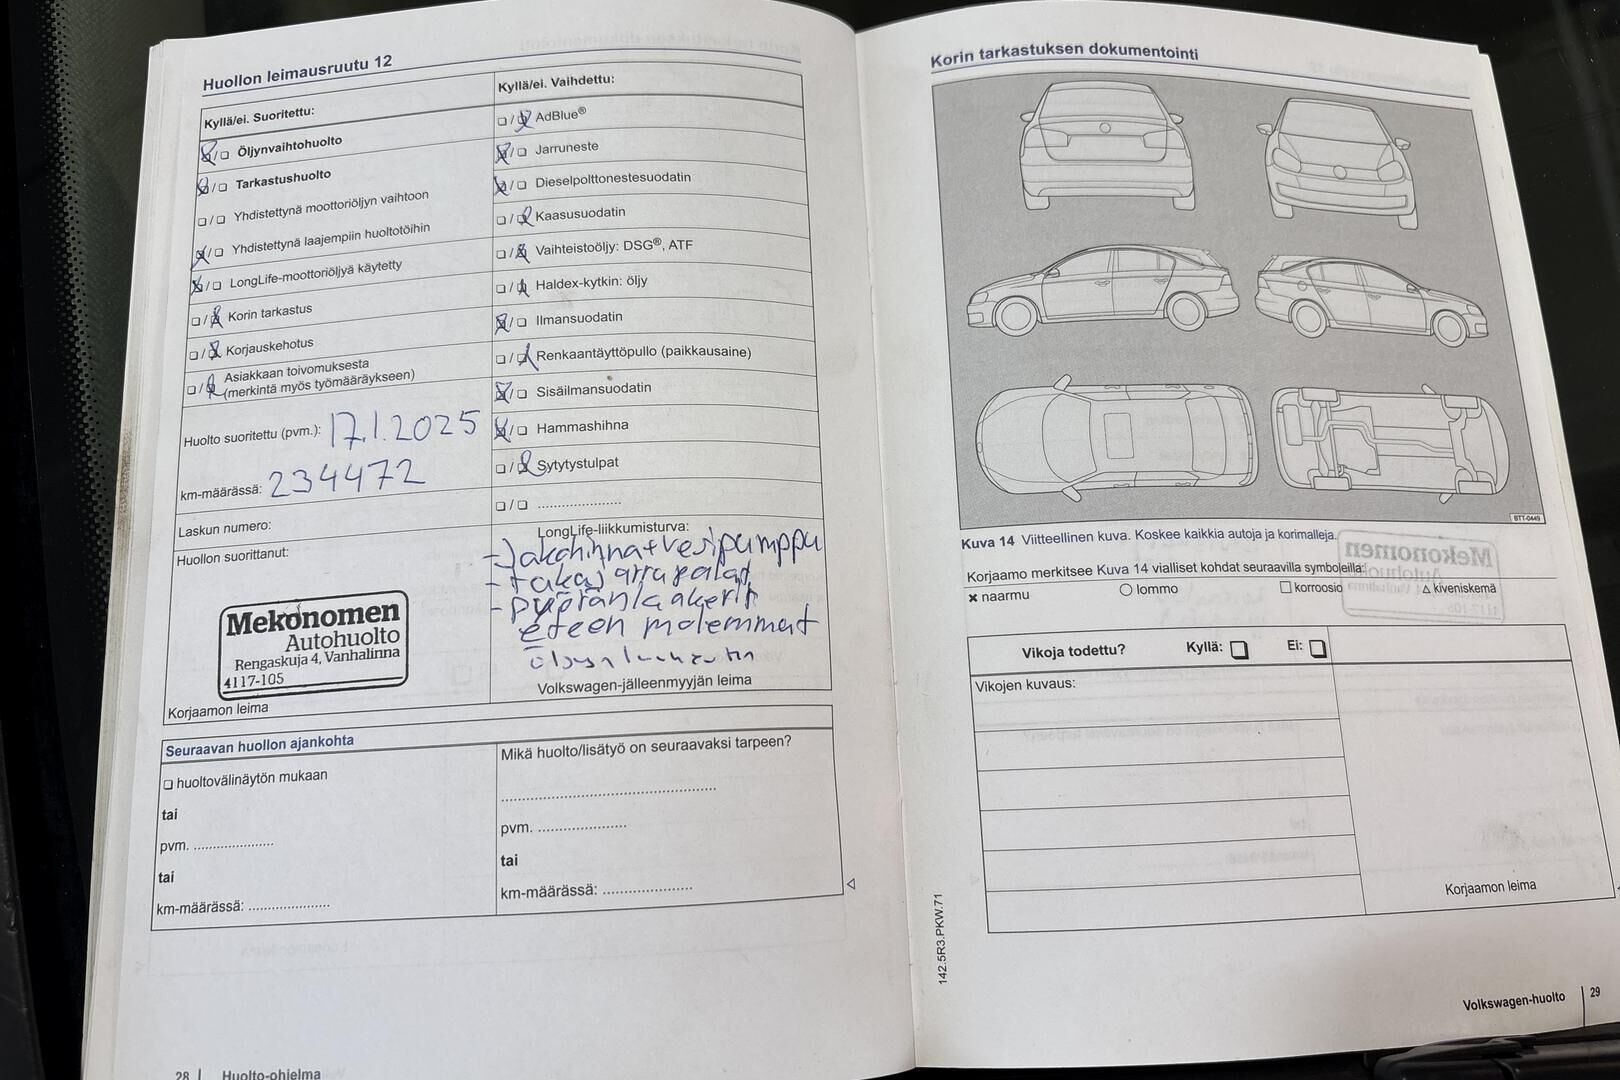 Huollon leimausruutu 12
Kyllä/ei. Suoritettu:
Öljynvaihtohuolto
Tarkastushuolto
Yhdistettynä moottoriöljyn vaihtoon
Yhdistettynä laajempiin huoltotöihin
LongLife-moottoriöljyä käytetty
Korin tarkastus
Korjauskehotus
Asiakkaan toivomuksesta
(merkintä myös työmääräykseen)
Huolto suoritettu (pvm.): 17.1.2025
km-määrässä: 234472
Laskun numero:
Huollon suorittanut:
Mekonomen
Autohuolto
Rengaskuja 4, Vanhalinna
4117-105
Korjaamon leima
Kyllä/ei. Vaihdettu:
AdBlue®
Jarruneste
Dieselpolttonestesuodatin
Kaasusuodatin
Vaihteistoöljy: DSG®, ATF
Haldex-kytkin: öljy
Ilmansuodatin
Renkaantäyttöpullo (paikkausaine)
Sisäilmansuodatin
Hammashihna
Sytytystulpat
LongLife-liikkumisturva:
- Jakohihna+vesipumppu
- takajarrupalat
- pyöränlaakerit
eteen molemmat
Volkswagen-jälleenmyyjän leima
Seuraavan huollon ajankohta
huoltovälinäytön mukaan
tai
pvm. ....................
tai
km-määrässä: ....................
Mikä huolto/lisätyö on seuraavaksi tarpeen?
pvm. ....................
tai
km-määrässä: ....................
28 | Huolto-ohjelma
Korin tarkastuksen dokumentointi
BTT-0449
Kuva 14 Viitteellinen kuva. Koskee kaikkia autoja ja korimalleja.
Korjaamo merkitsee Kuva 14 vialliset kohdat seuraavilla symboleilla:
x naarmu ○ lommo □ korroosio △ kiveniskemä
Vikoja todettu? Kyllä: □ Ei: □
Vikojen kuvaus:
Korjaamon leima
142.5R3.PKW.71
Volkswagen-huolto | 29